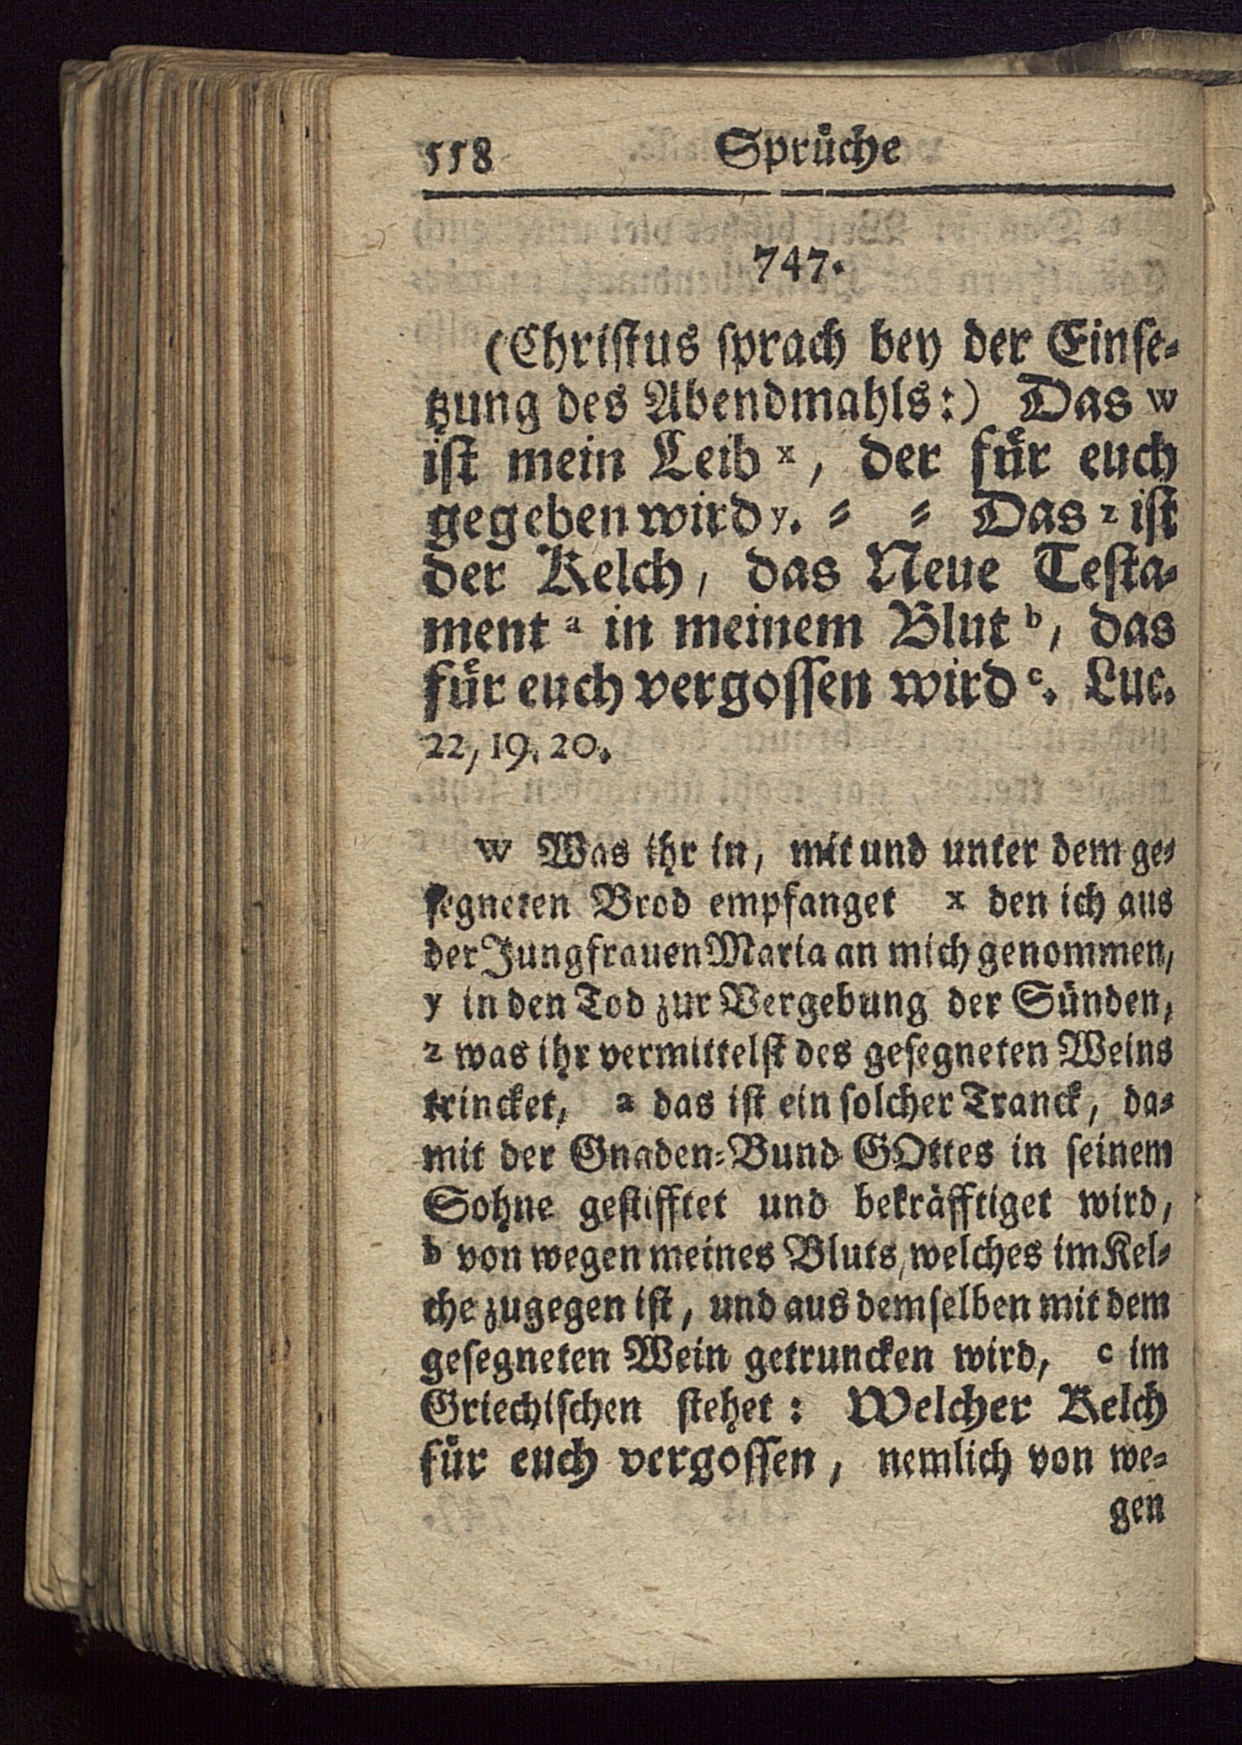 558 Sprüche
747.
(Christus sprach bey der Einse⸗
tzung des Abendmahls:) Das w
ist mein Leib x, der für euch
gegeben wird y. ⸗ ⸗ Das z ist
der Kelch, das Neue Testa⸗
ment a in meinem Blut b, das
für euch vergossen wird c. Luc.
22, 19. 20.
w Was ihr in, mit und unter dem ge⸗
segneten Brod empfanget x den ich aus
der Jungfrauen Maria an mich genommen,
y in den Tod zur Vergebung der Sünden,
z was ihr vermittelst des gesegneten Weins
trincket, a das ist ein solcher Tranck, da⸗
mit der Gnaden⸗Bund GOttes in seinem
Sohne gestifftet und bekräfftiget wird,
b von wegen meines Bluts, welches im Kel⸗
che zugegen ist, und aus demselben mit dem
gesegneten Wein getruncken wird, c im
Griechischen stehet: Welcher Kelch
für euch vergossen, nemlich von we⸗
gen